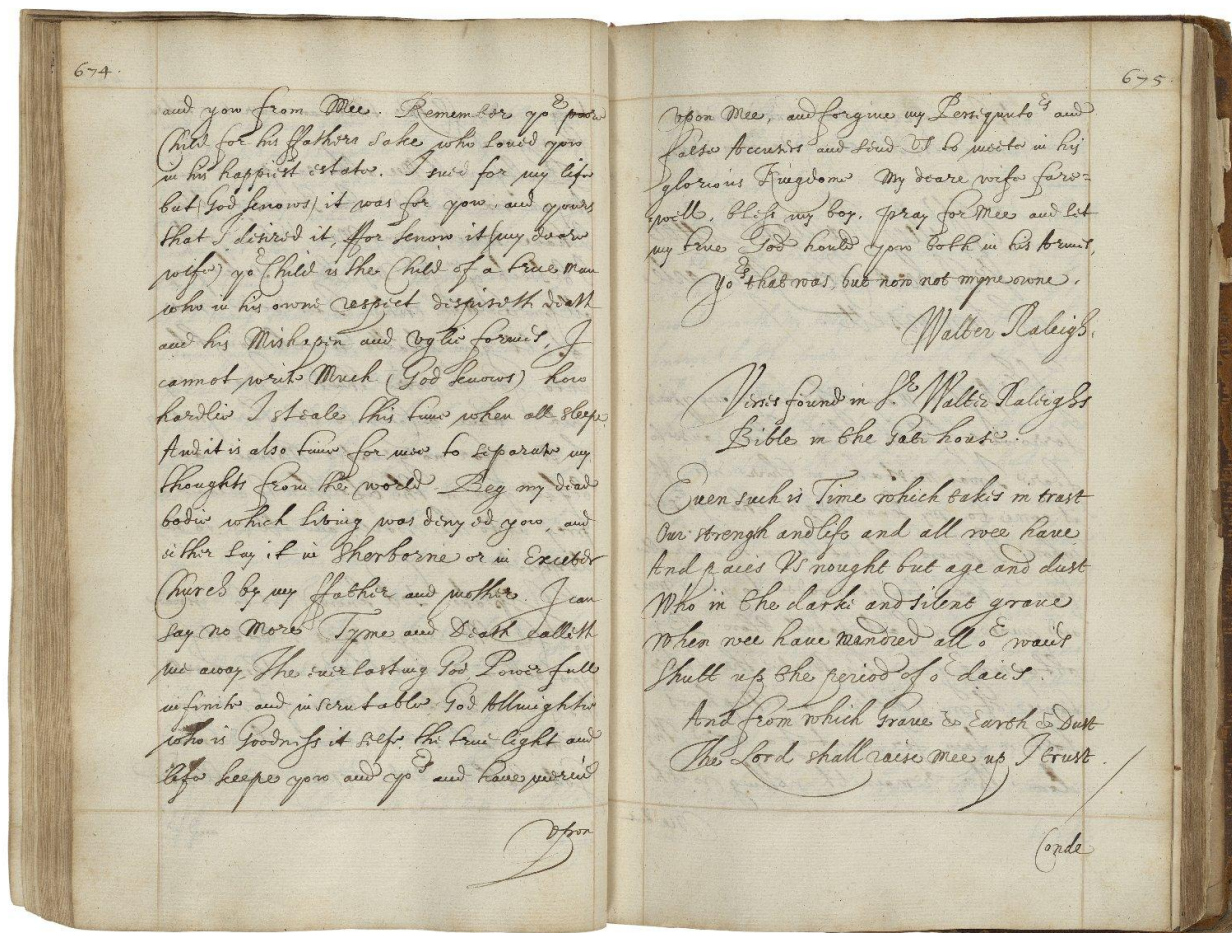 674.
and yow from Mee. Remember yor poore
Child for his ffathers sake who loved yow
in his happiest estate. I sued for my life
but (God knows) it was for yow, and yours
that I desired it, ffor know it (my deare
wife) yor Child is the Child of a true man
who in his owne respect despiseth death
and his Mishapen and Uglie formes. I
cannot write Much (God knows) how
hardlie I steale this time when all sleepe.
And it is also time for mee to separate my
thoughts from the world. Beg my dead
bodie which living was denyed yow, and
either lay it in Sherborne or in Exceter
Church by my ffather and mother. I can
say no More Tyme and Death calleth
me away. The everlasting God Powerfull
infinite and inscrutable God Allmightie
who is Goodness it selfe, the true light and
life keepe yow and yors and have mercie
upon
675.
Upon Mee, and forgive my Persequutors and
false Accusers and send Us to meete in his
glorious Kingdome My deare wife fare=
well, bless my boy, pray for Mee and let
my true God hould yow both in his Armes.
Yors that was, but now not myne owne.
Walter Raleigh.
Verses found in Sr Walter Raleighs
Bible in the Gatehouse.
Euen such is Time which takes in trust
Our strengh and life and all wee have
And paies Us nought but age and dust
Who in the darke and silent grave
When wee have wandred all or waies
Shutt up the period of or daies.
And from which Grave & Earth & Dust
The Lord shall raise Mee up I trust.
Conde